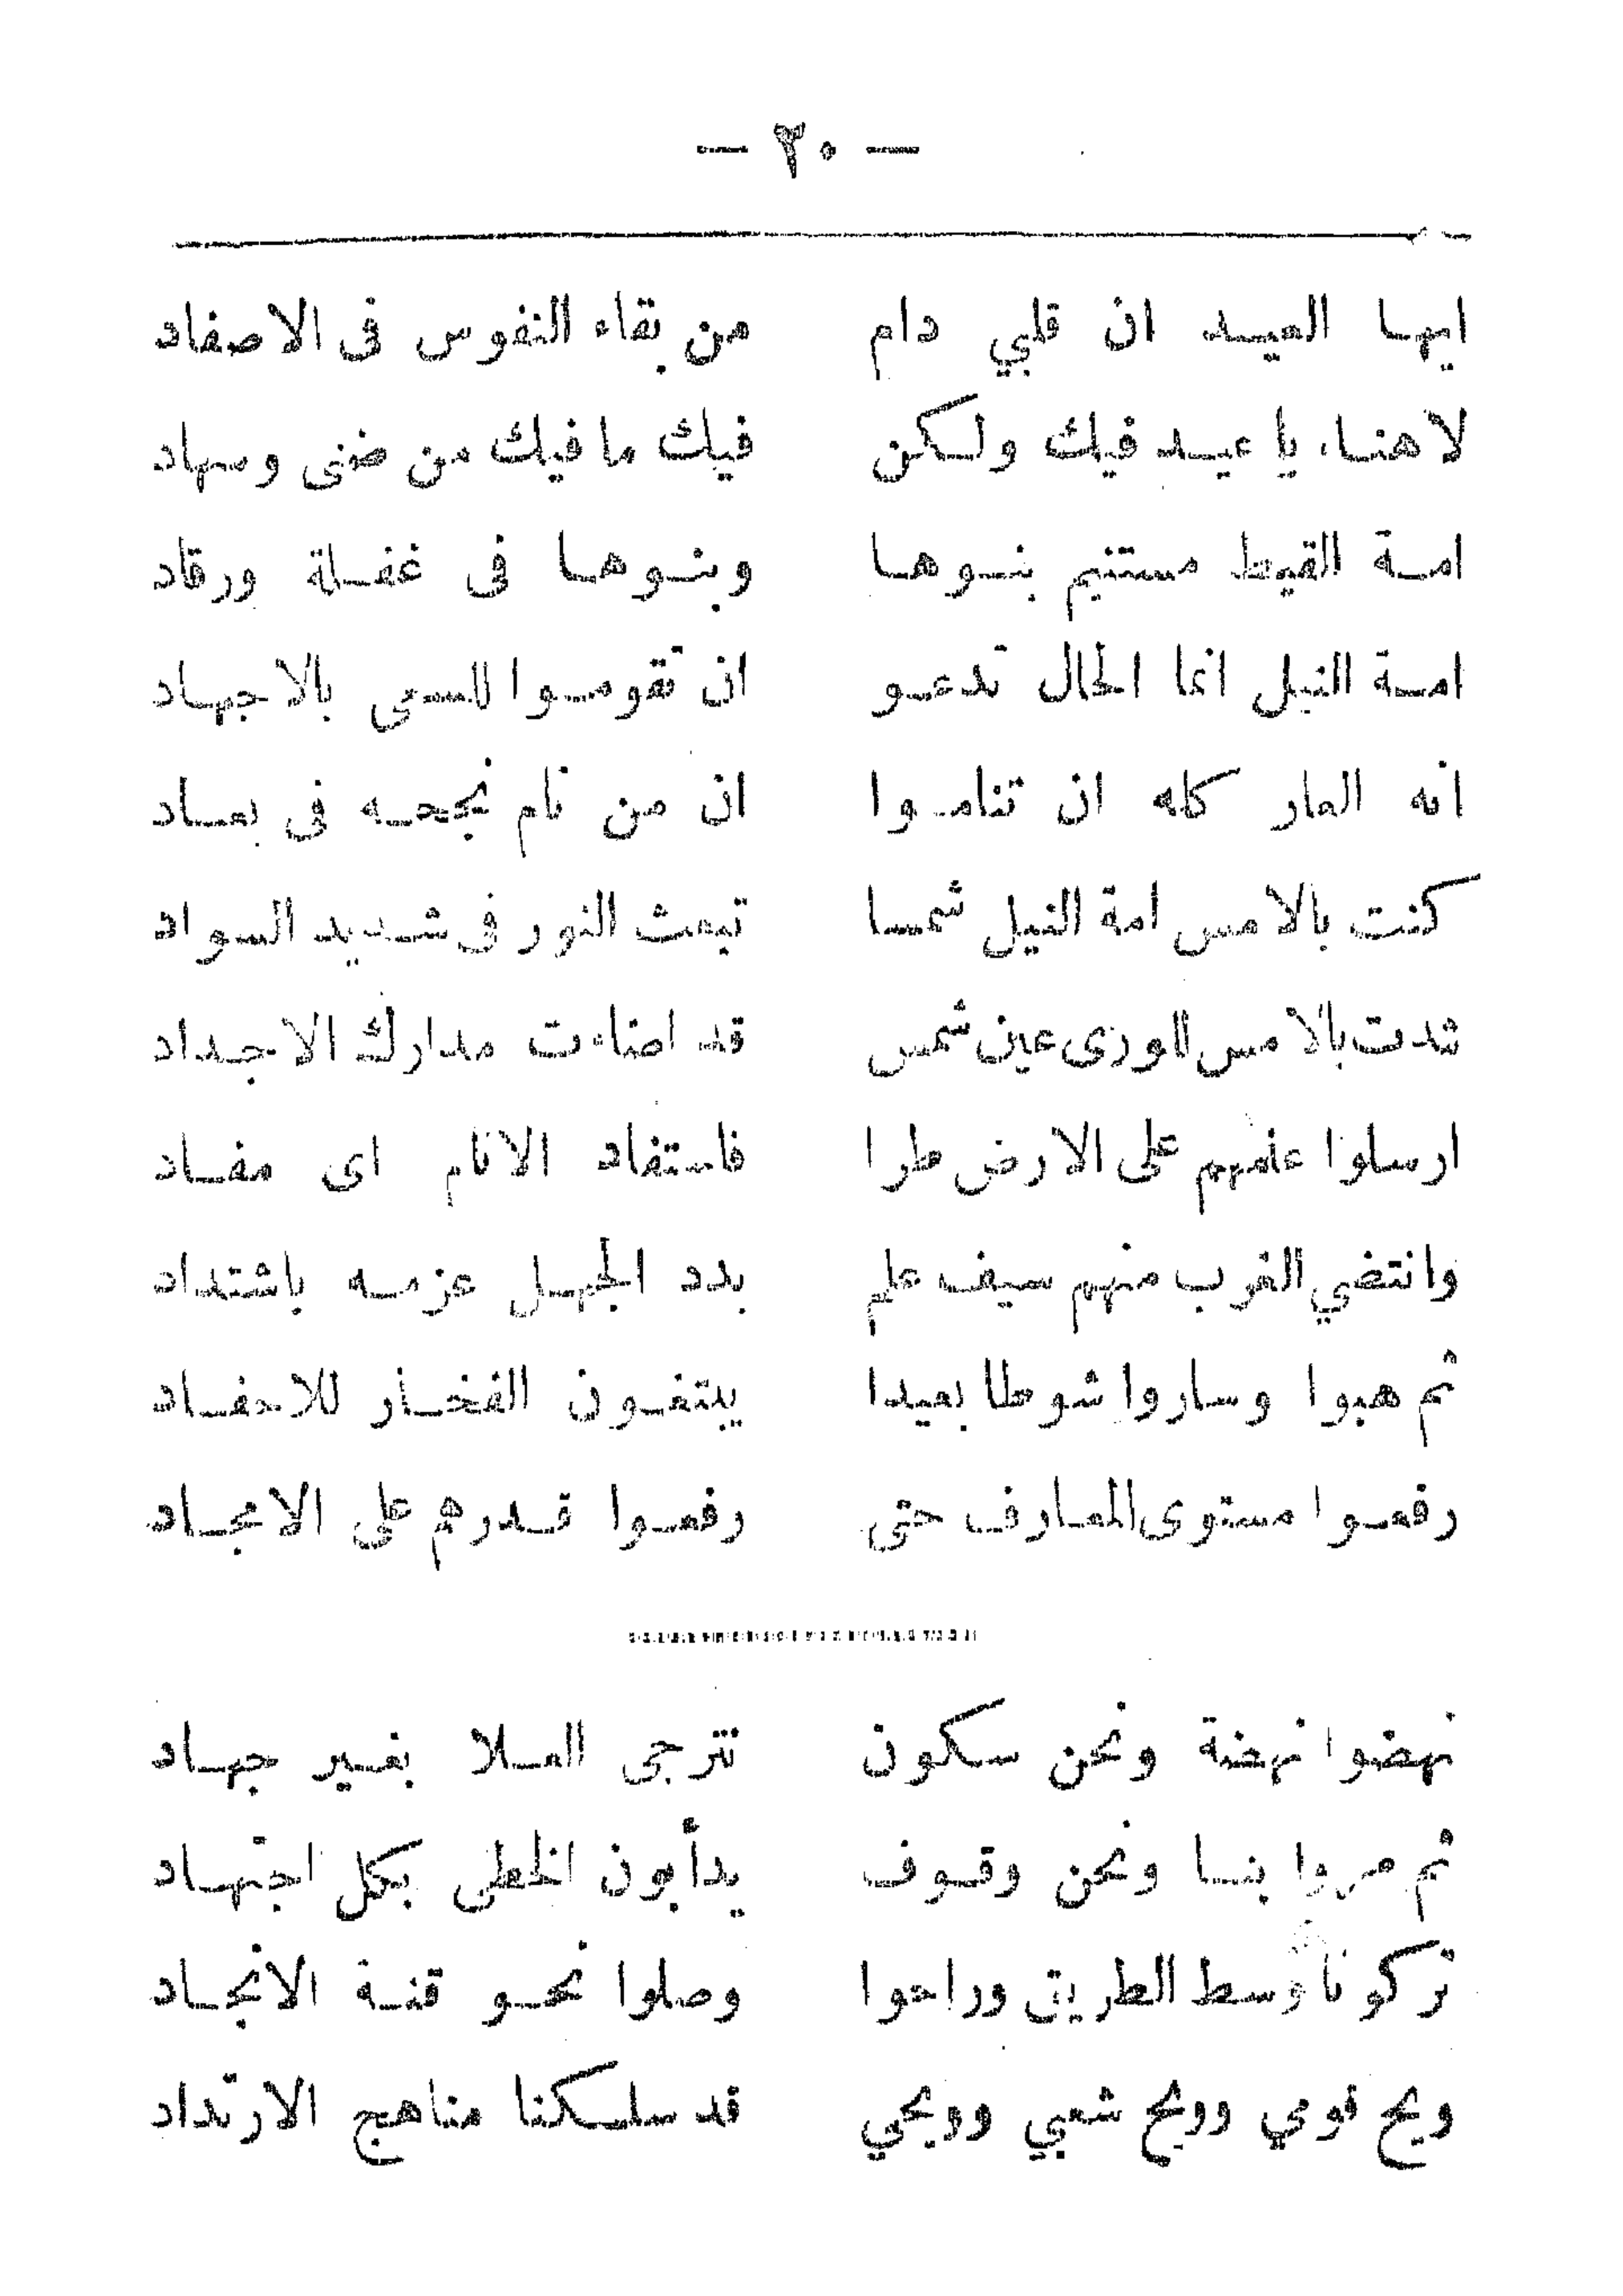 — ٢٠ —
ايها العيد ان قلبي دام من بقاء النفوس فى الاصفاد
لاهناء ياعيد فيك ولكن فيك مافيك من ضنى وسهاد
امة القبط مستنيم بنوها وبنوها فى غفلة ورقاد
امة النيل انما الحال تدعو ان تقوموا للسعى بالاجهاد
انه العار كله ان تناموا ان من نام نجحه فى بعاد
كنت بالامس امة النيل شمسا تبعث النور فى شديد السواد
شدت بالامس للورى عين شمس قد اضاءت مدارك الاجداد
ارسلوا علمهم على الارض طرا فاستفاد الانام اى مفاد
وانتضي الغرب منهم سيف علم بدد الجهل عزمه باشتداد
ثم هبوا وساروا شوطا بعيدا يبتغون الفخار للاحفاد
رفعوا مستوى المعارف حتى رفعوا قدرهم على الامجاد
نهضوا نهضة ونحن سكون نترجى العلا بغير جهاد
ثم مروا بنا ونحن وقوف يدأبون الخطى بكل اجتهاد
تركونا وسط الطريق وراحوا وصلوا نحو قنة الانجاد
ويح قومي وويح شعبي وويحي قد سلكنا مناهج الارتداد